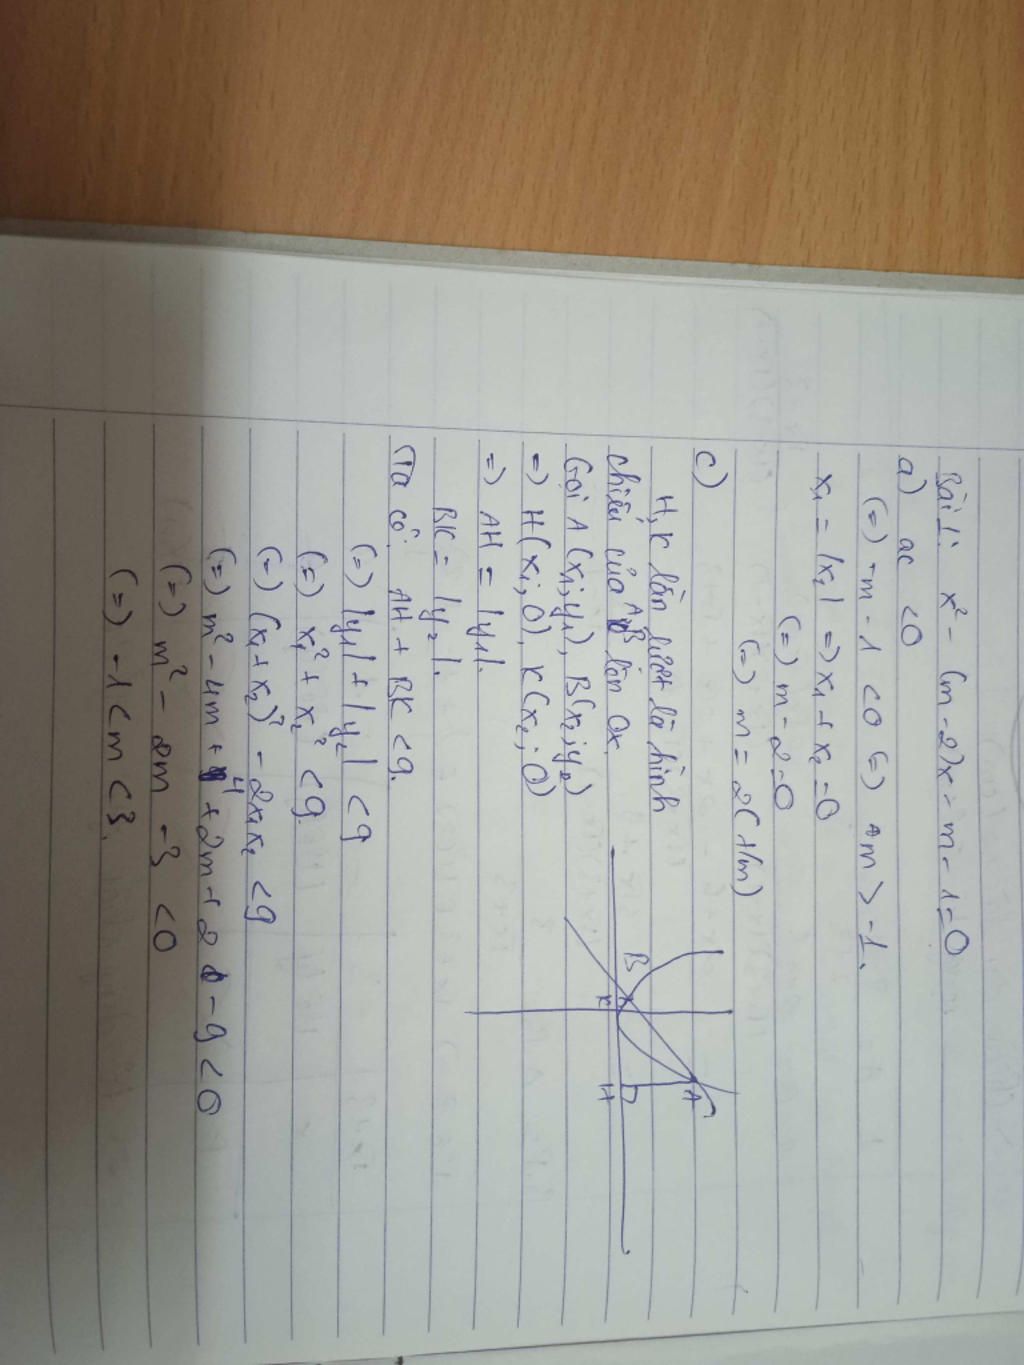 Bài 1: x² - (m-2)x - m - 1 = 0
a) ac < 0
(=) -m - 1 < 0 (=) m > -1.
x₁ = |x₂| => x₁ + x₂ = 0
(=) m - 2 = 0
(=) m = 2 (t/m)
c)
H, K lần lượt là hình
chiếu của A, B lên Ox.
Gọi A(x₁; y₁), B(x₂; y₂)
=> H(x₁; 0), K(x₂; 0)
=> AH = |y₁|.
BK = |y₂|.
Ta có: AH + BK < 9.
(=) |y₁| + |y₂| < 9
(=) x₁² + x₂² < 9.
(=) (x₁ + x₂)² - 2x₁x₂ < 9
(=) m² - 4m + 4 + 2m + 2 - 9 < 0
(=) m² - 2m - 3 < 0
(=) -1 < m < 3.
A
B
H
K